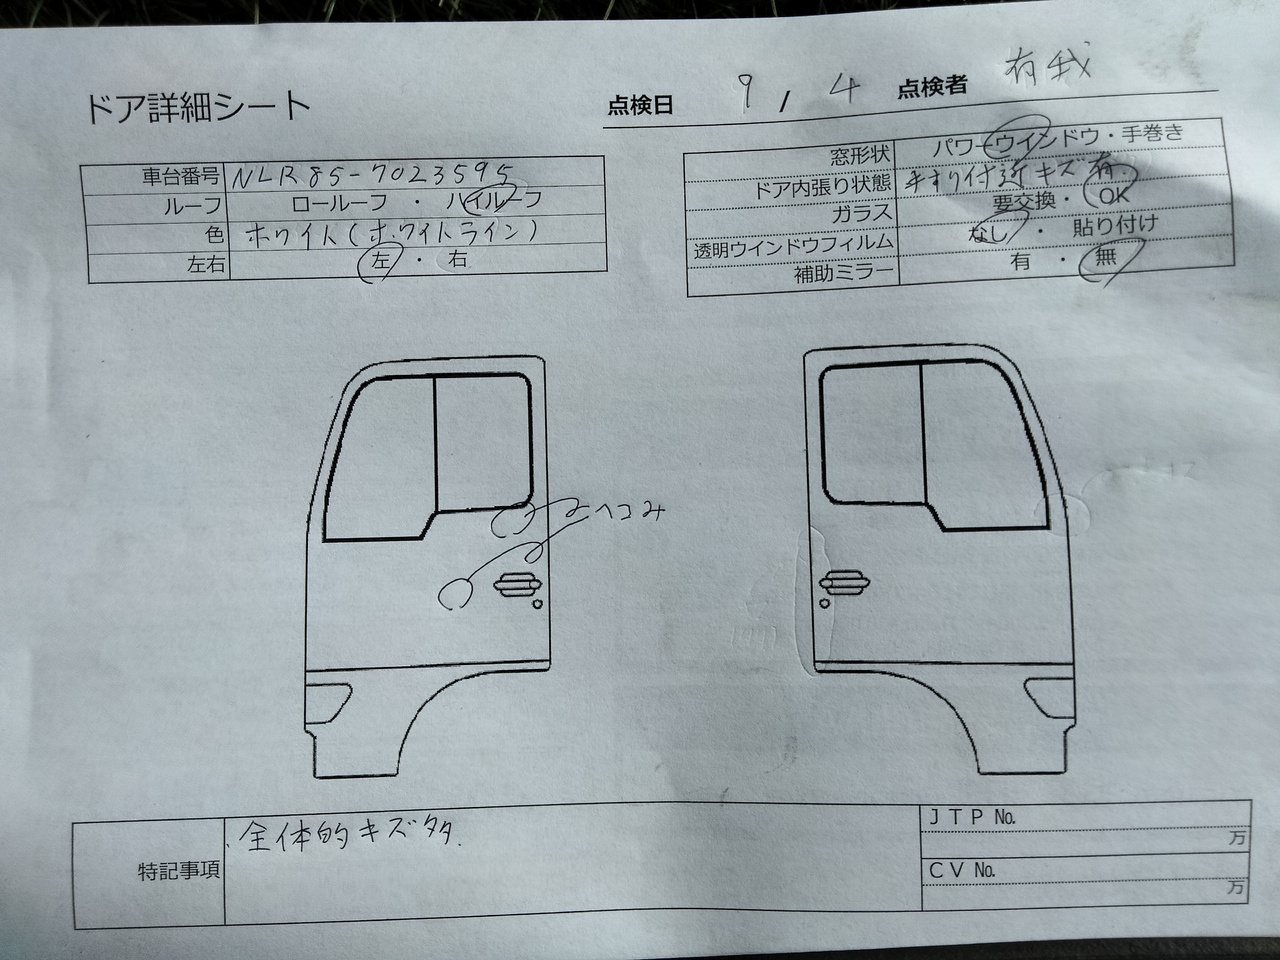 ドア詳細シート
点検日 9 / 4 点検者 有我
車台番号 NLR85-7023595
ルーフ ロールーフ ・ ハイルーフ
色 ホワイト(ホワイトライン)
左右 左 ・ 右
窓形状 パワーウインドウ・手巻き
ドア内張り状態 手すり付近キズ有.
ガラス 要交換・OK
透明ウインドウフィルム なし ・ 貼り付け
補助ミラー 有 ・ 無
ヘコみ
特記事項 .全体的キズ多.
JTP №
万
CV №
万